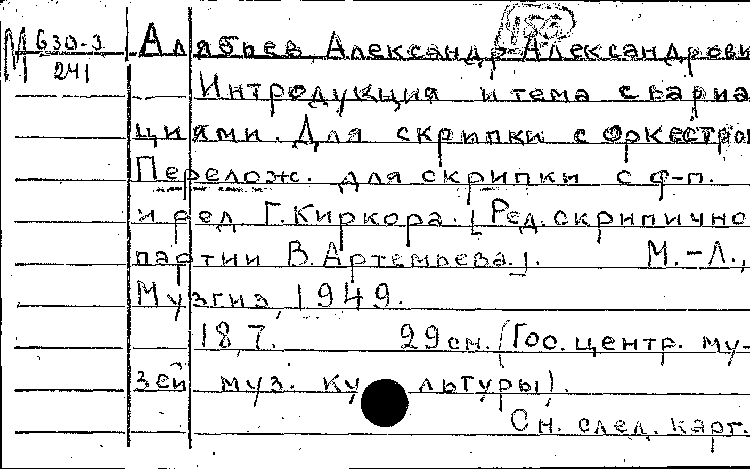 М 630-3
241
Алябьев, Александр Александрови
Интродукция и тема с вариа
циями. Для скрипки с оркестром
Перелож. для скрипки с ф-п.
и ред. Г. Киркора. [Ред. скрипично
партии В. Артемьева.]. М.-Л.,
Музгиз, 1949.
18, 7. 29 см. (Гос. центр. му-
зей муз. культуры).
См. след. карт.